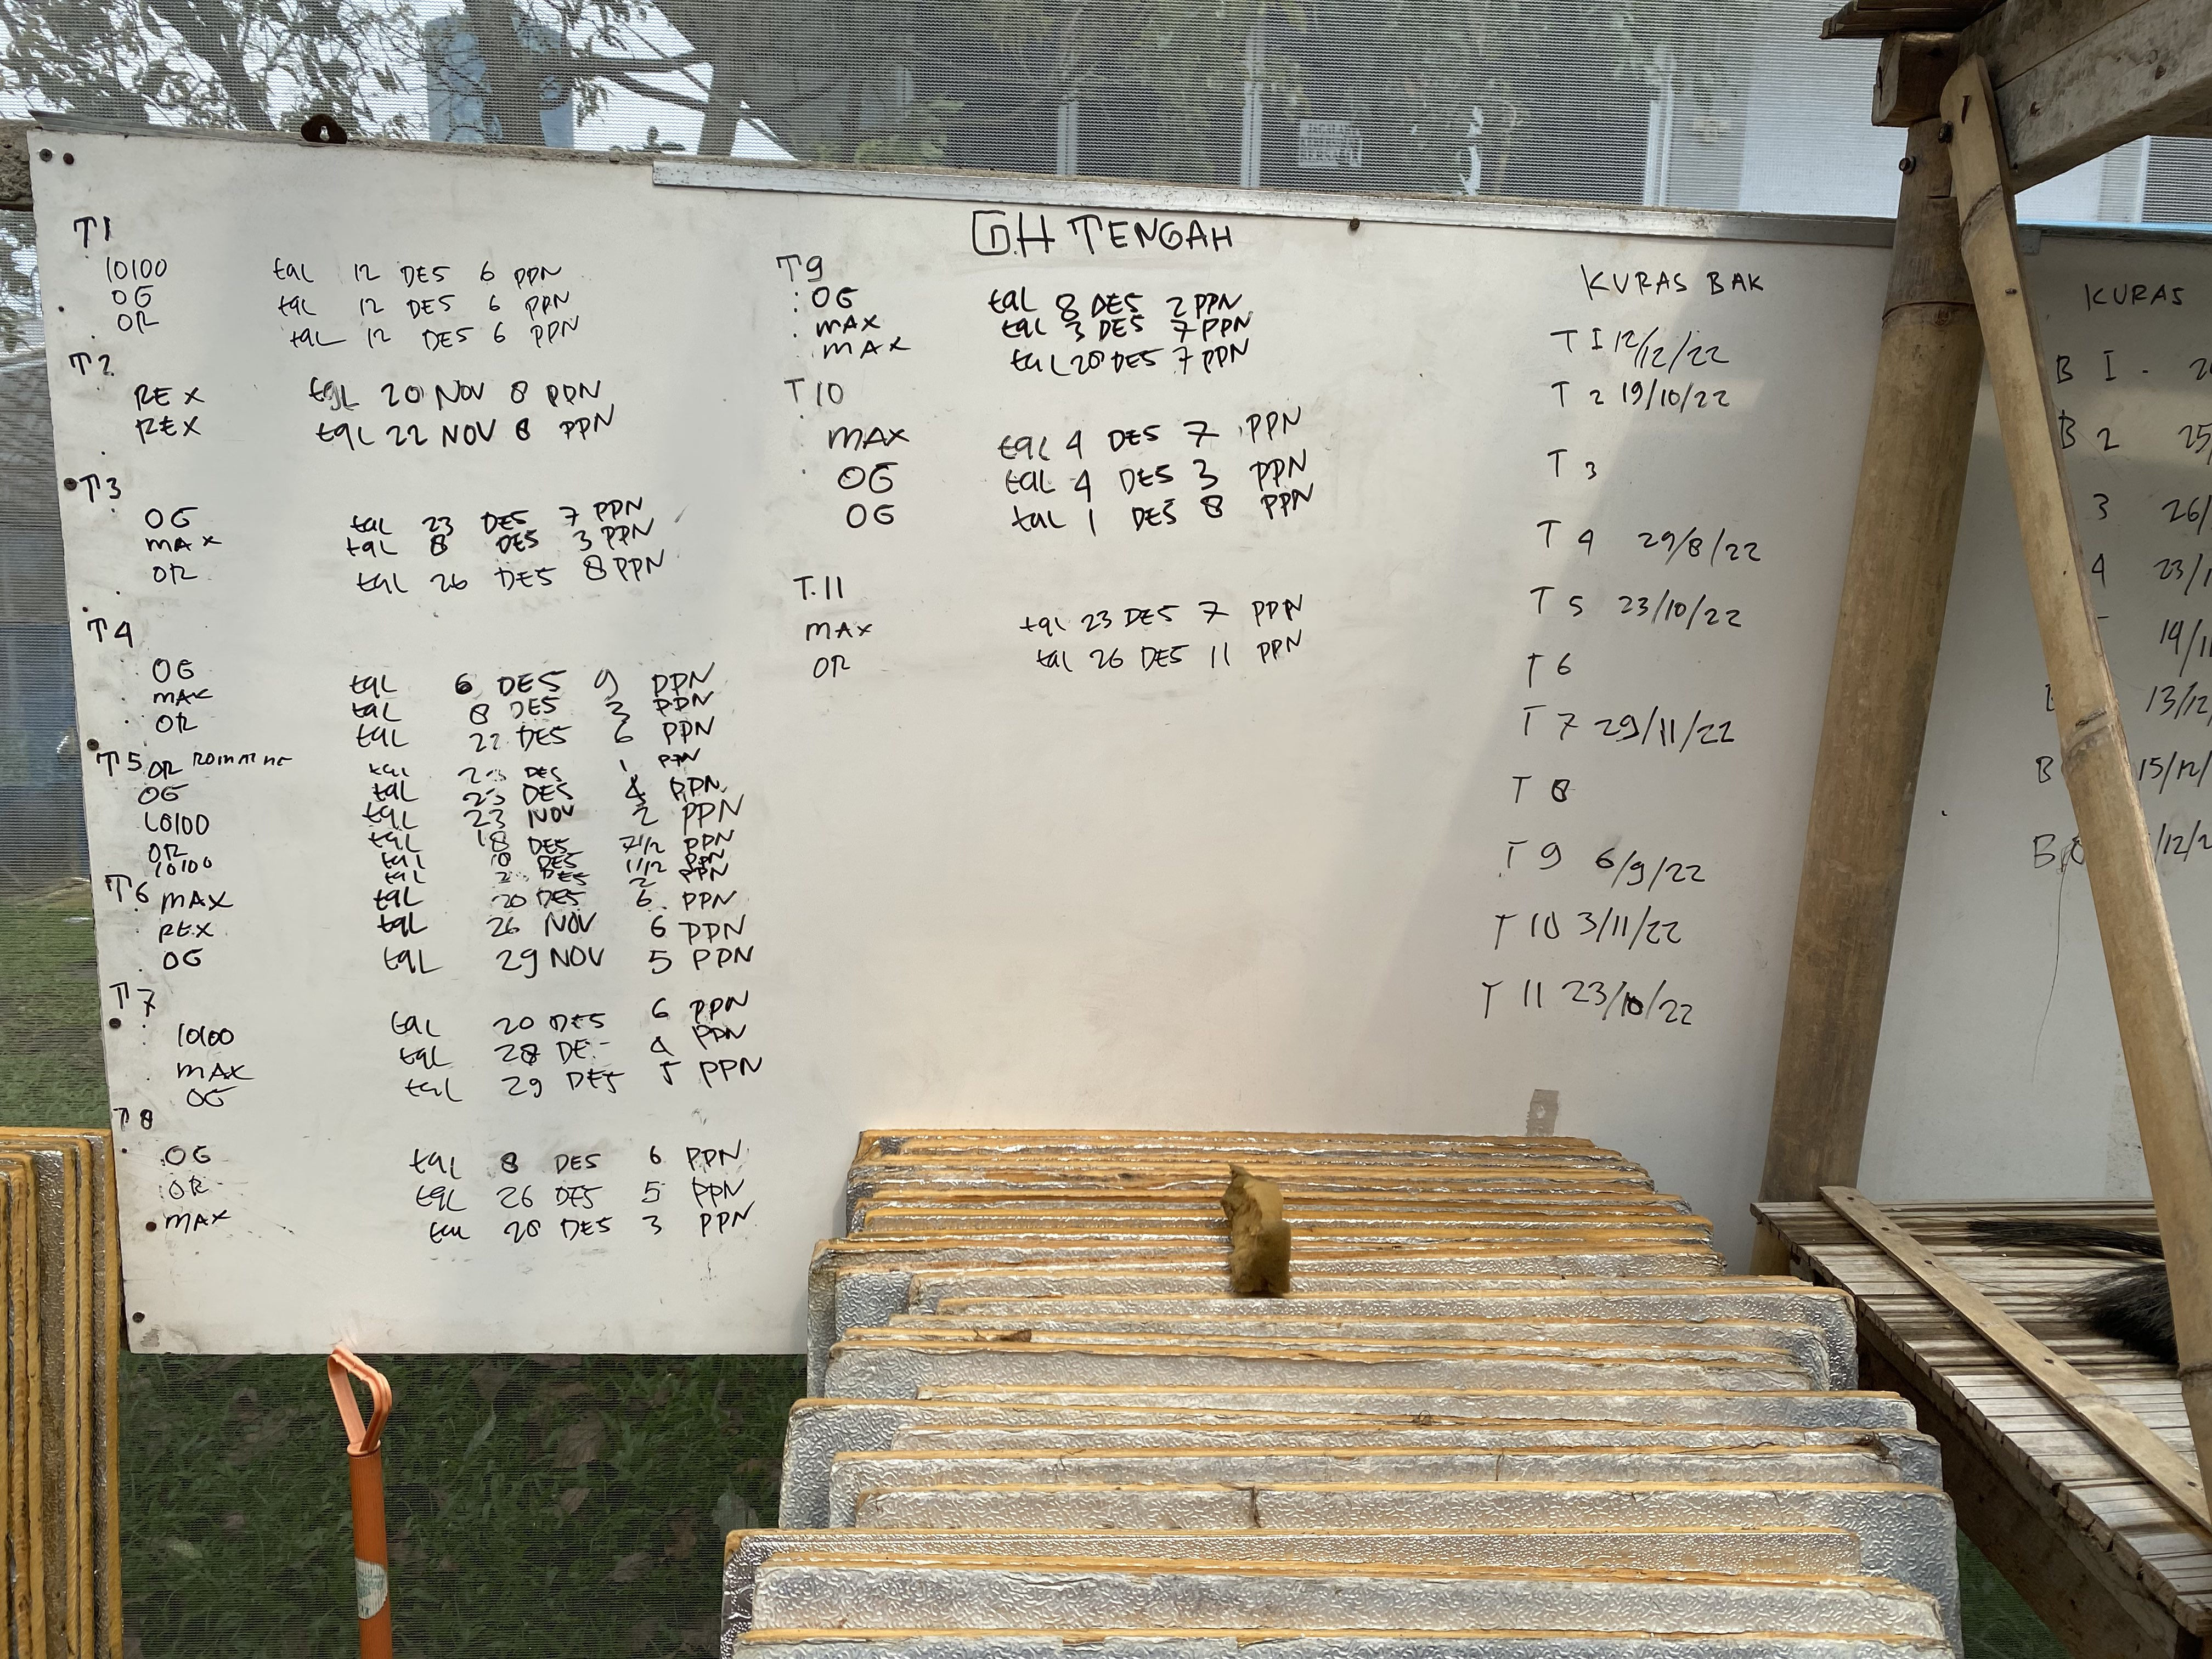 GH TENGAH
T1
10100 tgl 12 DES 6 PPN
OG tgl 12 DES 6 PPN
OR tgl 12 DES 6 PPN
T2
REX tgl 20 NOV 8 PPN
REX tgl 22 NOV 8 PPN
T3
OG tgl 23 DES 7 PPN
MAX tgl 8 DES 3 PPN
OR tgl 26 DES 8 PPN
T4
OG tgl 6 DES 9 PPN
MAX tgl 8 DES 3 PPN
OR tgl 22 DES 6 PPN
T5 OR ROMAINE tgl DES 1 PPN
OG tgl 23 DES 4 PPN
10100 tgl 23 NOV 2 PPN
OR tgl 18 DES 7 1/2 PPN
10100 tgl 10 DES 1 1/2 PPN
tgl 2 DES 2 PPN
T6 MAX tgl 20 DES 6 PPN
REX tgl 26 NOV 6 PPN
OG tgl 29 NOV 5 PPN
T7
10100 tgl 20 DES 6 PPN
MAX tgl 28 DE 4 PPN
OG tgl 29 DES 5 PPN
T8
OG tgl 8 DES 6 PPN
OR tgl 26 DES 5 PPN
MAX tgl 28 DES 3 PPN
T9
OG tgl 8 DES 2 PPN
MAX tgl 3 DES 7 PPN
MAX tgl 20 DES 7 PPN
T10
MAX tgl 4 DES 7 PPN
OG tgl 4 DES 3 PPN
OG tgl 1 DES 8 PPN
T.11
MAX tgl 23 DES 7 PPN
OR tgl 26 DES 11 PPN
KURAS BAK
T I 12/12/22
T 2 19/10/22
T 3
T 4 29/8/22
T 5 23/10/22
T 6
T 7 29/11/22
T 8
T 9 6/9/22
T 10 3/11/22
T 11 23/10/22
KURAS
B I - 2
B 2 25/
3 26/
4 23/1
19/11
13/12/
B 15/12/
B /12/2